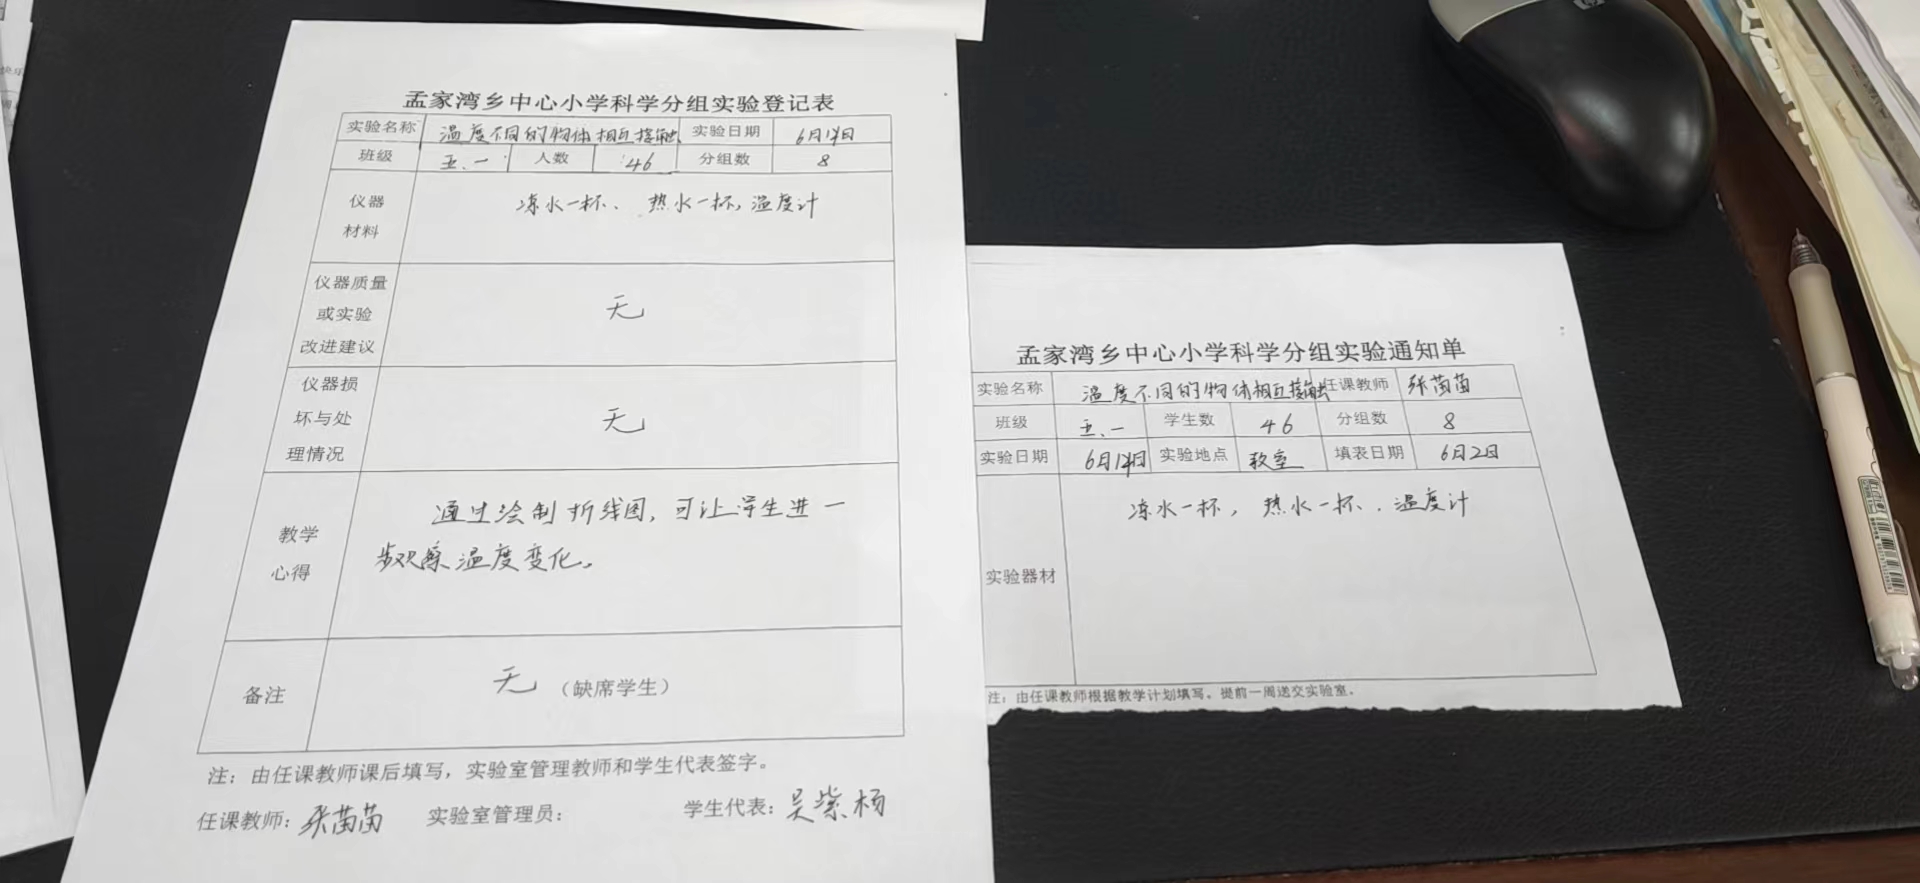 孟家湾乡中心小学科学分组实验登记表
实验名称 温度不同的物体相互接触 实验日期 6月14日
班级 五、一 人数 46 分组数 8
仪器
材料
冻水一杯、热水一杯,温度计
仪器质量
或实验
改进建议
无
仪器损
坏与处
理情况
无
教学
心得
通过绘制折线图,可让学生进一
步观察温度变化。
备注 无 (缺席学生)
注:由任课教师课后填写,实验室管理教师和学生代表签字。
任课教师:张苗苗 实验室管理员: 学生代表:吴紫杨
孟家湾乡中心小学科学分组实验通知单
实验名称 温度不同的物体相互接触 任课教师 张苗苗
班级 五、一 学生数 46 分组数 8
实验日期 6月14日 实验地点 教室 填表日期 6月2日
实验器材 冻水一杯,热水一杯、温度计
注:由任课教师根据教学计划填写。提前一周送交实验室。
hp